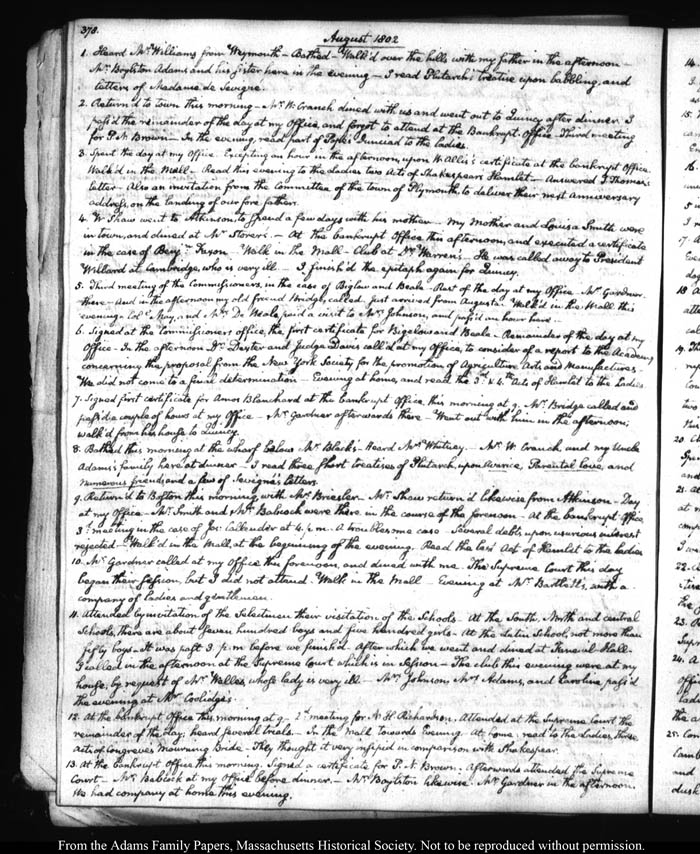 378.
August 1802
1. Heard Mr. Williams from Weymouth — Bathed — Walk'd over the hills with my father in the afternoon —
Mr. Boylston Adams and his sister here in the evening — I read Plutarch's treatise upon babbling, and
letters of Madame de Sevigne.
2. Return'd to town this morning — Mr. W. Cranch dined with us and went out to Quincy after dinner. I
pass'd the remainder of the day at my Office, and forgot to attend at the Bankrupt Office. Third meeting
for P. N. Brown — In the evening, read part of Pope's Dunciad to the Ladies.
3. Spent the day at my Office. Excepting an hour in the afternoon, upon W. Allis's certificate at the bankrupt Office.
Walk'd in the Mall — Read this evening to the Ladies two Acts of Shakespear's Hamlet — Answered J. Thomas's
letter — Also an invitation from the Committee of the town of Plymouth, to deliver their next anniversary
address, on the landing of our forefathers.
4. W. Shaw went to Atkinson, to spend a few days with his mother — My Mother and Louisa Smith were
in town, and dined at Mr. Storer's. — At the bankrupt Office, this afternoon, and executed a certificate
in the case of Benjn. Faxon. Walk in the Mall — Club at Dr. Warren's — He was called away to President
Willard at Cambridge, who is very ill. — I finish'd the epitaph again for Quincy.
5. Third meeting of the Commissioners, in the case of Biglow and Beale. Part of the day at my Office. Mr. Gardner
there — And in the afternoon my old friend Bridge, called. Just arrived from Augusta. Walk'd in the Mall this
evening — Col. May, and Mrs. De Neale paid a visit to Mrs. Johnson, and pass'd an hour here.
6. Signed at the Commissioners office, the first certificate for Bigelow and Beale — Remainder of the day at my
Office — In the afternoon Dr. Dexter and Judge Davis call'd at my Office, to consider of a report to the Academy
concerning the proposal from the New York Society, for the promotion of Agriculture Arts, and Manufactures.
We did not come to a final determination — Evening at home, and read the 3d. & 4th. Acts of Hamlet to the Ladies
7. Signed first certificate for Amos Blanchard at the bankrupt Office, this morning at 9. Mr. Bridge called and
pass'd a couple of hours at my Office — Mr. Gardner afterwards there — Went out with him in the afternoon;
walk'd from his house to Quincy.
8. Bathed this morning at the wharf below Mr. Black's. Heard Mr. Whitney. — Mr. W. Cranch, and my Uncle
Adams's family here at dinner — I read three short treatises of Plutarch, upon Avarice, Parental Love, and
numerous friends and a few of Sevigne's letters.
9. Return'd to Boston this morning, with Mr. Briesler — Mr. Shaw return'd likewise from Atkinson — Day
at my Office — Mr. Smith and Mr. Babcock were there in the course of the forenoon — At the bankrupt Office
3d. meeting in the case of Jos: Callender at 4. p.m. A troublesome case — Several debts upon usurious interest
rejected — Walk'd in the Mall, at the beginning of the evening. Read the last Act of Hamlet to the Ladies
10. Mr. Gardner called at my Office this forenoon, and dined with me. The Supreme Court this day
began their Session, but I did not attend. Walk in the Mall — Evening at Mr. Bartlett's, with a
company of Ladies and gentlemen.
11. Attended by invitation of the Selectmen their visitation of the Schools — At the South, North and central
Schools, there are about seven hundred boys and five hundred girls — At the Latin School, not more than
fifty boys — It was past 3. p.m. before we finish'd — After which we went and dined at Faneuil-Hall —
I called in the afternoon at the Supreme Court which is in Session — The club this evening were at my
house, by request of Mr. Welles, whose lady is very ill — Mrs. Johnson, Mrs. Adams, and Caroline, pass'd
the evening at Mr. Coolidge's.
12. At the bankrupt Office this morning at 9 — 2d. meeting for N. H. Richardson. Attended at the Supreme Court the
remainder of the day, heard several trials. — In the Mall towards Evening. At home, read to the Ladies, three
acts of Congreve's Mourning Bride — They thought it very insipid in comparison with Shakespear.
13. At the bankrupt Office this morning. Signed a certificate for P. N. Brown. Afterwards attended the Supreme
Court — Mr. Babcock at my Office before dinner — Mr. Boylston likewise. Mr. Gardner in the afternoon.
We had company at home this evening.
14.
15.
16.
17.
18.
19.
20.
21.
22.
23.
24.
25.
From the Adams Family Papers, Massachusetts Historical Society. Not to be reproduced without permission.